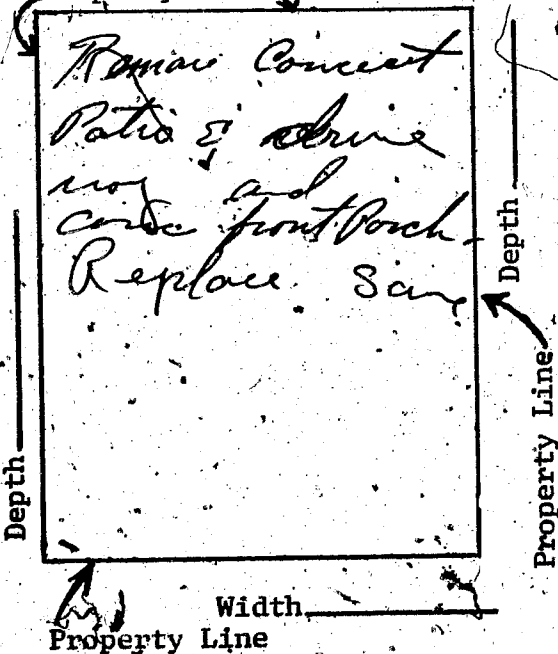 Remove Concret
Patio & drive
way and
conc front Porch.
Replace Same
Depth
Depth
Property Line
Width
Property Line